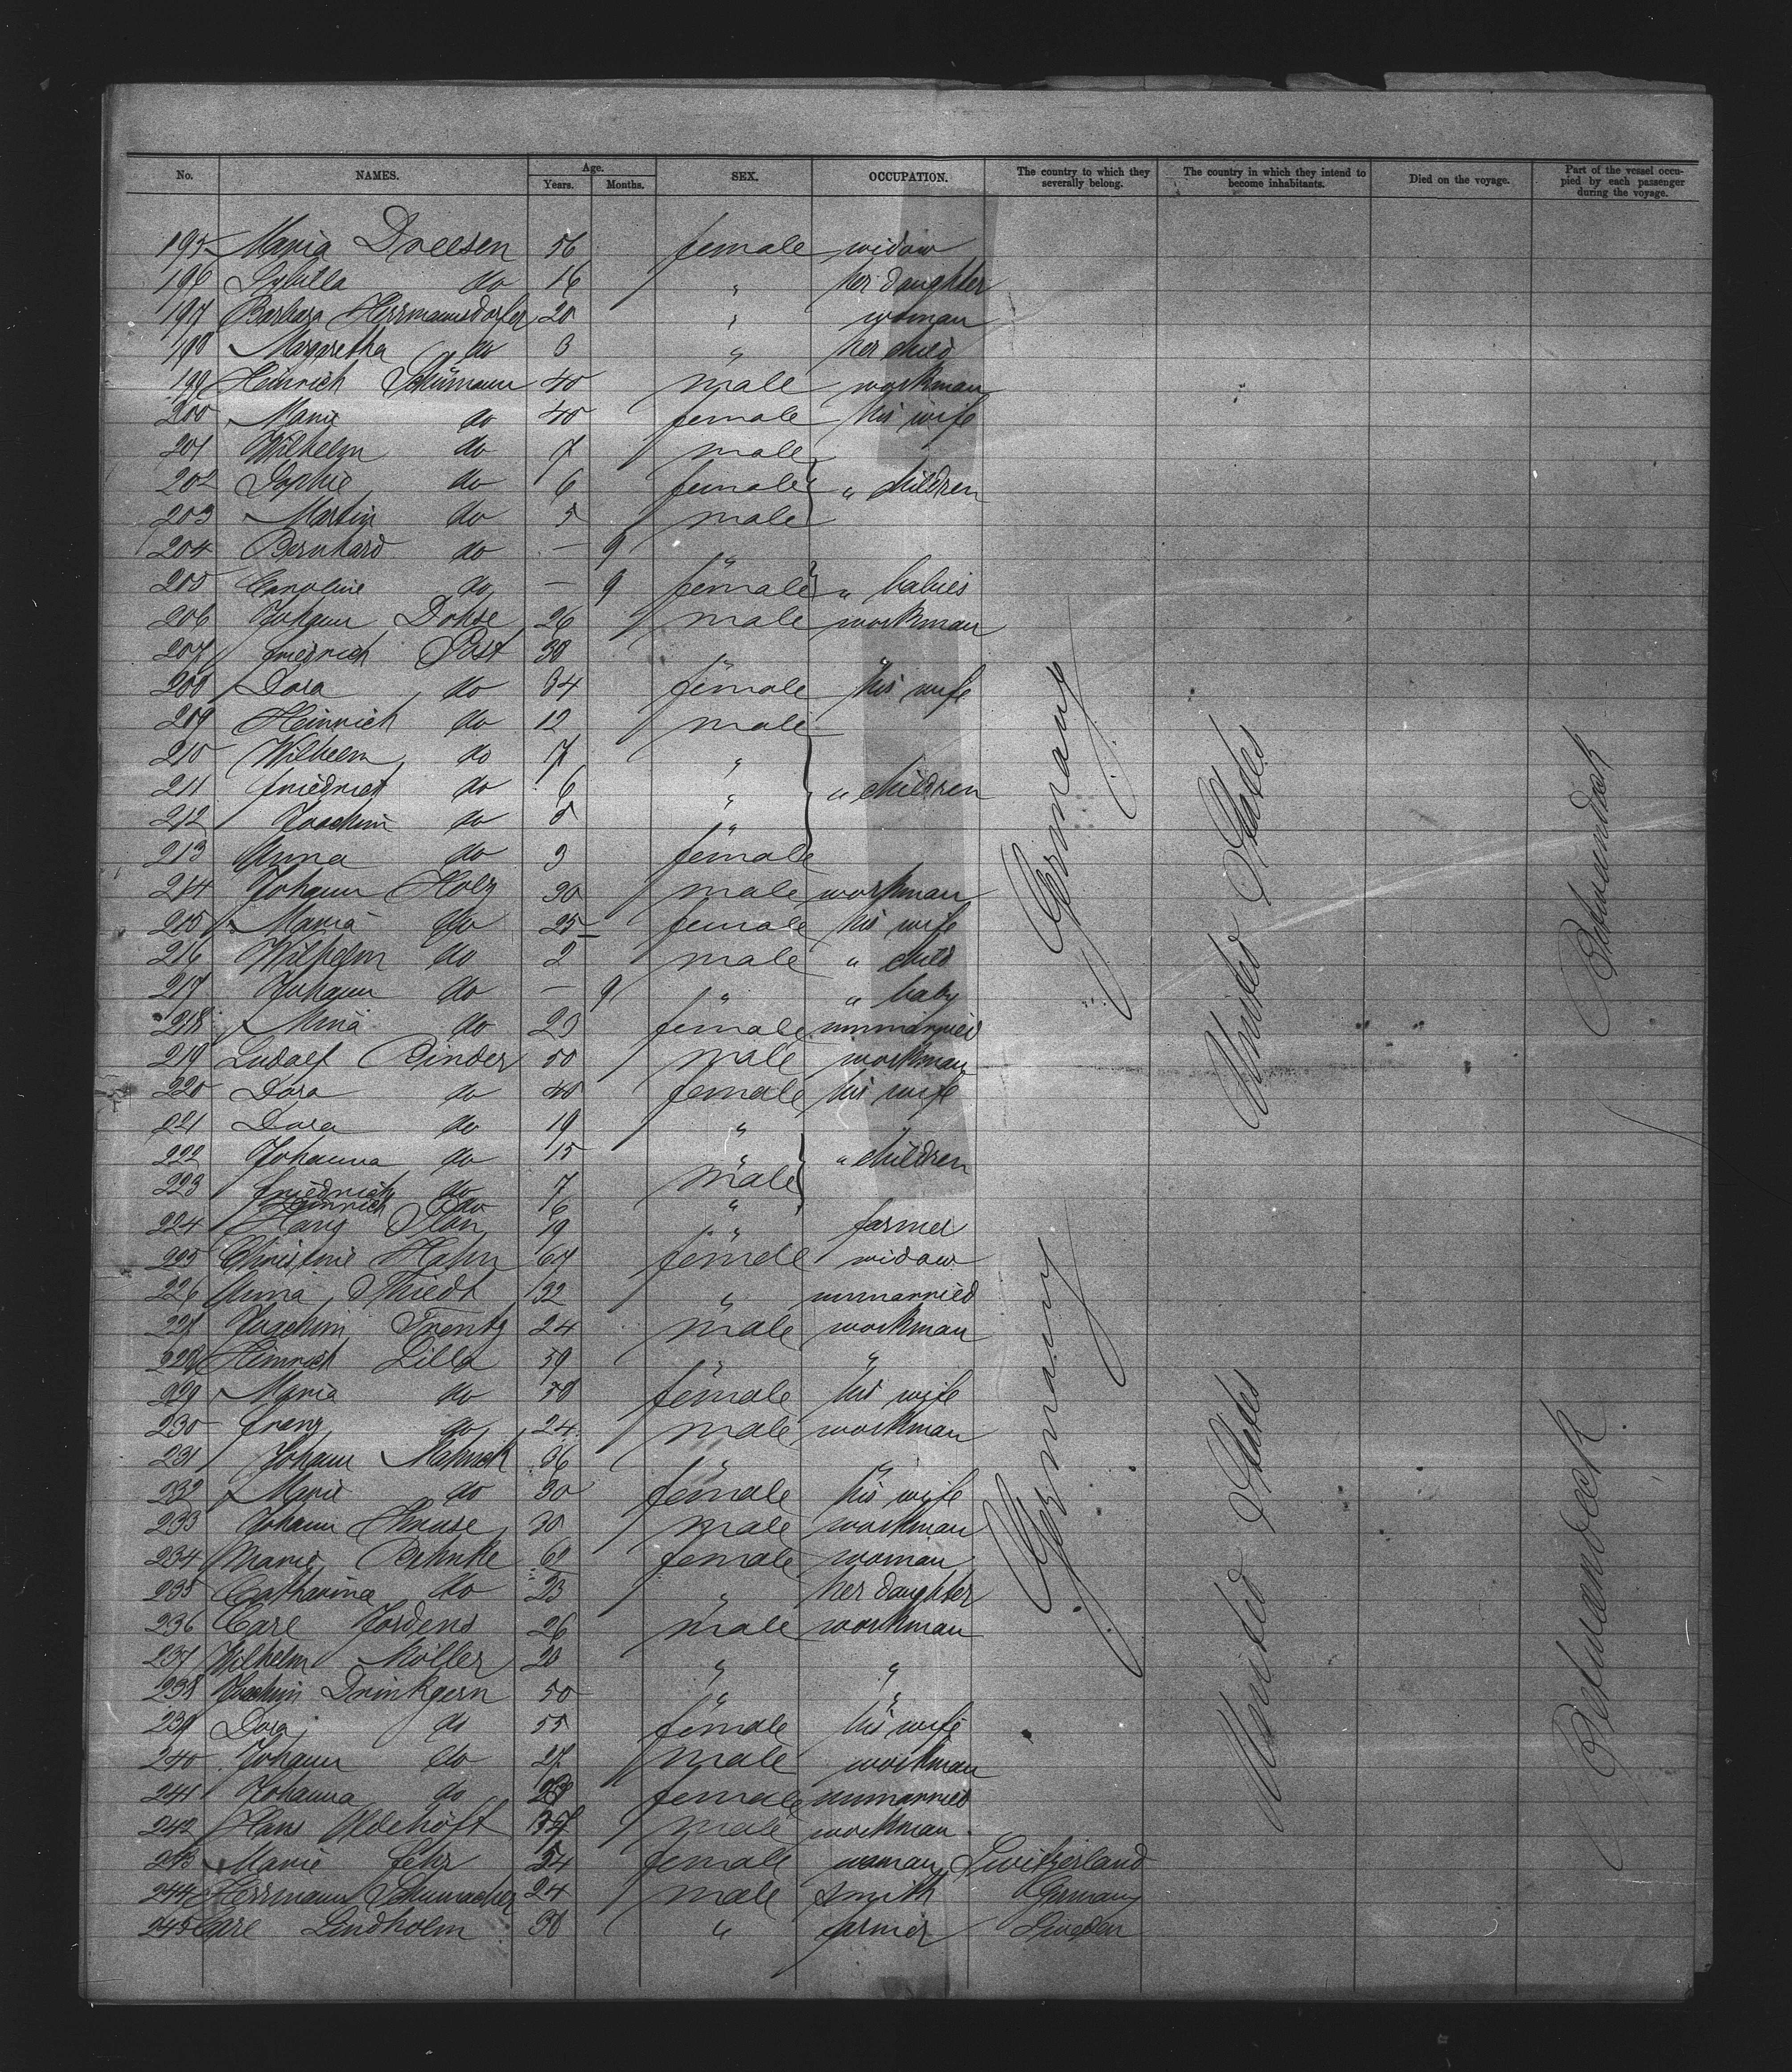 No. NAMES. Age. Years. Months. SEX. OCCUPATION. The country to which they severally belong. The country in which they intend to become inhabitants. Died on the voyage. Part of the vessel occupied by each passenger during the voyage.
195 Maria Dreesen 56 female widow
196 Sybilla do 16 " her daughter
197 Barbara Herrmannsdorfer 20 " woman
198 Margaretha do 3 " her child
199 Heinrich Schümann 40 male workman
200 Marie do 40 female his wife
201 Wilhelm do 7 male
202 Sophie do 6 female " children
203 Martin do 5 male
204 Bernhard do — 9 "
205 Caroline do — 9 female " babies
206 Johann Dohse 26 male workman
207 Friedrich Post 38 " "
208 Dora do 34 female his wife
209 Heinrich do 12 male
210 Wilhelm do 7 "
211 Friedrich do 6 " " children
212 Joachim do 5 "
213 Anna do 3 female
214 Johann Holz 30 male workman
215 Maria do 25 female his wife
216 Wilhelm do 2 male " child
217 Johann do — 9 " " baby
218 Mina do 23 female unmarried
219 Ludolf Binder 50 male workman
220 Dora do 40 female his wife
221 Dora do 19 "
222 Johanna do 15 " " children
223 Friedrich do 7 male
Heinrich do 6 "
224 Hans Plön 19 " farmer
225 Christine Hahn 64 female widow
226 Anna Thiedt 32 " unmarried
227 Joachim Trentz 24 male workman
228 Heinrich Lilla 59 " "
229 Maria do 58 female his wife
230 Frenz do 24 male workman
231 Johann Mahnck 36 " "
232 Marie do 30 female his wife
233 Johann Kruse 30 male workman
234 Marie Behnke 61 female woman
235 Catharina do 23 " her daughter
236 Carl Jordens 26 male workman
237 Wilhelm Möller 20 " "
238 Joachim Drinkgern 50 " "
239 Dora do 55 female his wife
240 Johann do 27 male workman
241 Johanna do female unmarried
242 Hans Oldehöft male workman
243 Marie Fehr 24 female woman Switzerland
244 Herrmann Schumacher 24 male smith Germany
245 Carl Lindholm 30 " farmer Sweden
Germany
United States
Betweendeck
Germany
United States
Betweendeck